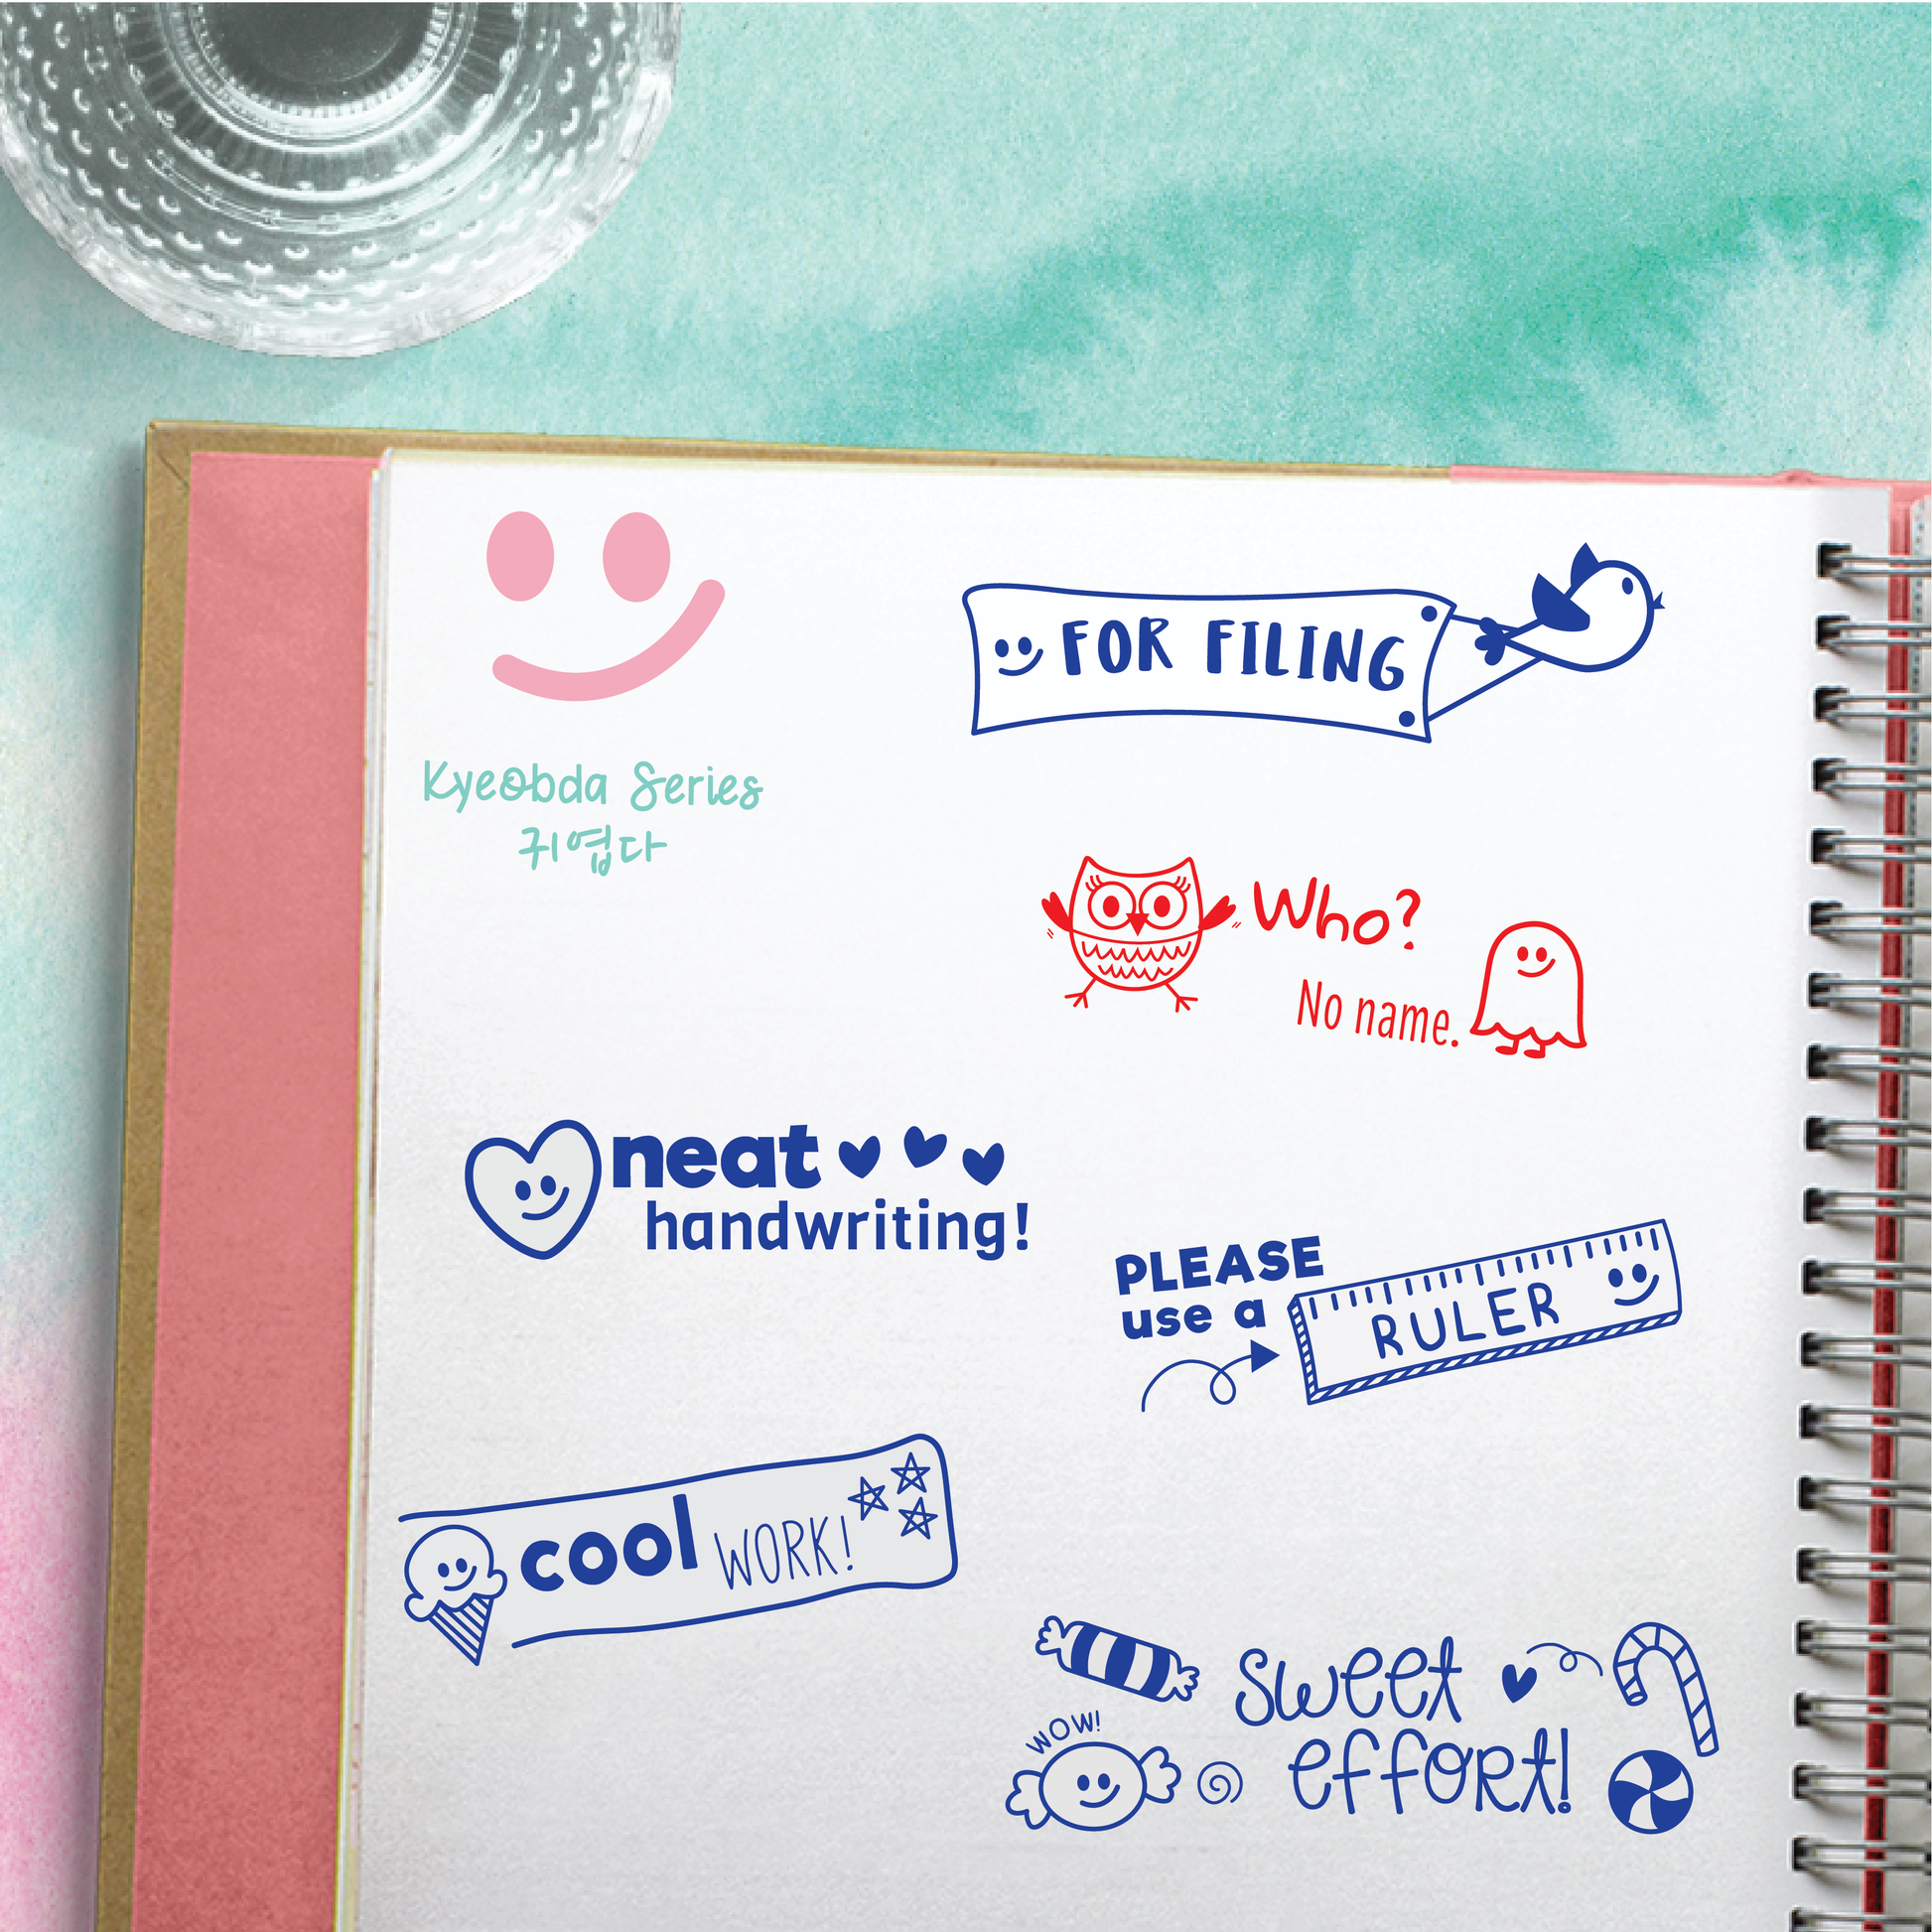 Kyeobda Series
귀엽다
FOR FILING
Who?
No name.
neat
handwriting!
PLEASE
use a
RULER
cool WORK!
WOW!
sweet
effort!